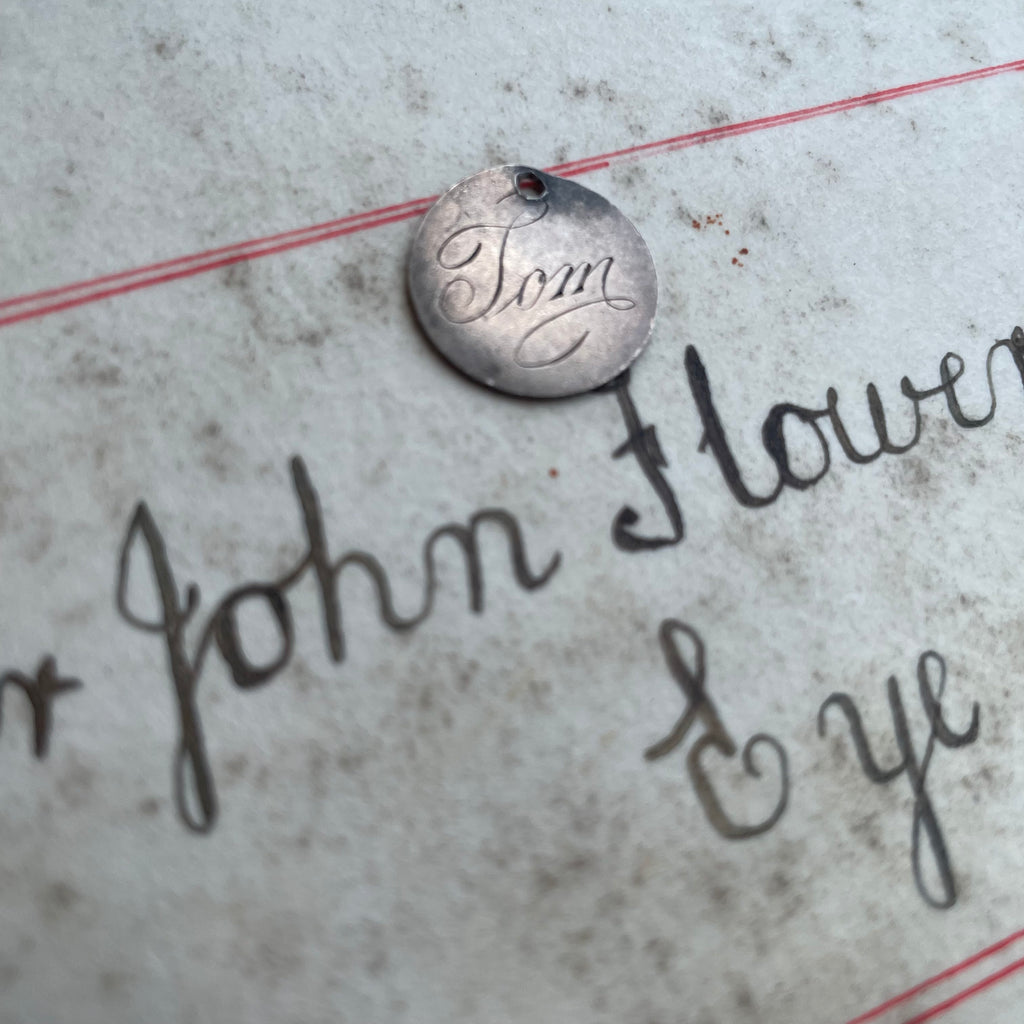 Tom
John Flower
Eye